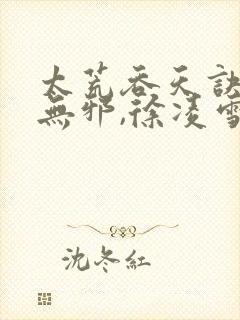 太荒吞天訣
無邪,徐凌雪
沈冬紅